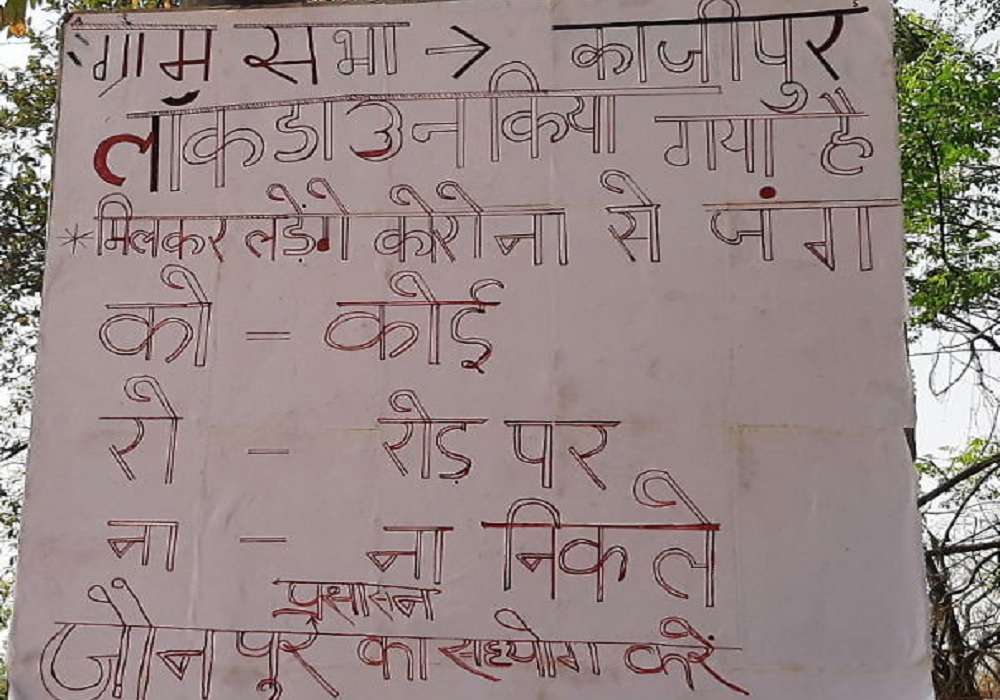 ग्राम सभा → काजीपुर
लॉकडाउन किया गया है
*मिलकर लड़ेंगे कोरोना से जंग
को - कोई
रो - रोड़ पर
ना - ना निकले
प्रसासन
जौनपुर का सहयोग करें